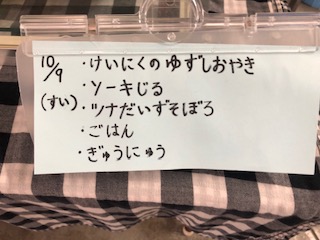 10/9
(すい)
・けいにくのゆずしおやき
・ソーキじる
・ツナだいずそぼろ
・ごはん
・ぎゅうにゅう